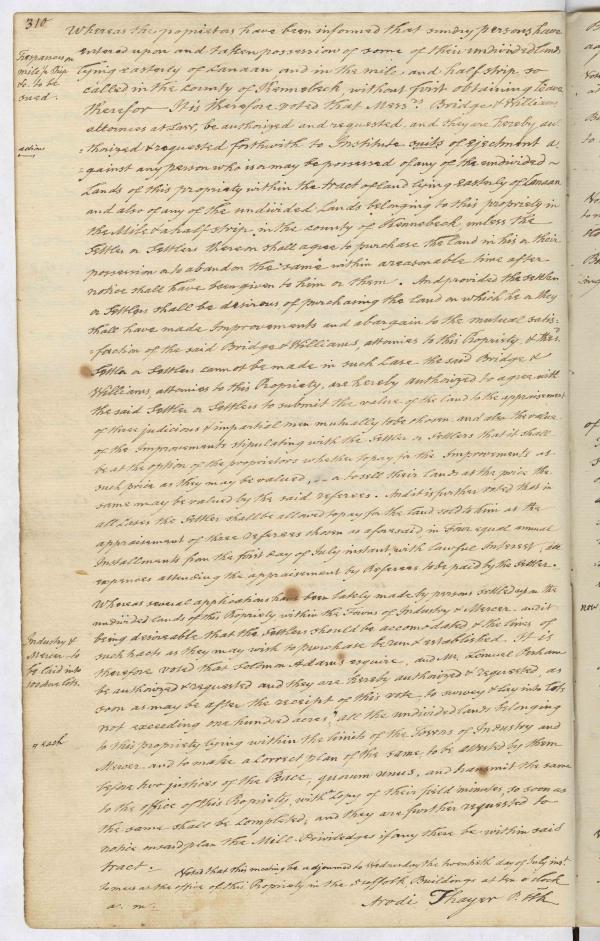 310
Whereas the propietors have been informed that sundry persons have
entered upon and taken possession of some of their undivided lands
Trespassers on
mile & ½ strip
&c. to be
sued.
lying easterly of Canaan and in the mile and half strip so
called in the County of Kennebeck, without first obtaining leave
therefor — It is therefore voted that Mess.rs Bridge & Williams
attornies at Law, be authorized and requested, and they are hereby au-
actions
-thorized & requested forthwith to Institute suits of Ejectment a-
-gainst any person who is or may be possessed of any of the undivided
Lands of this propriety within the tract of land lying Easterly of Canaan
and also of any of the undivided Lands belonging to this propriety in
the Mile & a half strip in the county of Kennebeck unless the
Settler or Settlers thereon shall agree to purchase the land in his or their
possession or to abandon the same within a reasonable time after
notice shall have been given to him or them. And provided the settler
or Settlers shall be desirous of purchasing the land on which he or they
shall have made Improvements and a bargain to the mutual satis-
-faction of the said Bridge & Williams, attornies to this Propriety, & the s.d
Settler or Settlers cannot be made in such Case the said Bridge &
Williams, attornies to this Propriety, are hereby authorized to agree with
the said Settler or Settlers to submit the value of the land to the appraisement
of three judicious & impartial men mutually to be chosen, and also the value
of the Improvements stipulating with the Settler or Settlers that it shall
be at the option of the proprietors whether to pay for the Improvements at
such price as they may be valued, or to sell their lands at the price the
same may be valued by the said referees. And it is further voted that in
all Cases the Settler shall be allowed to pay for the land sold to him at the
appraisement of three referees chosen as aforesaid in Four equal annual
Installments from the first day of July instant with lawful Interest, all
expences attending the appraisement by Referees to be paid by the Settler.
Whereas several applications have been lately made by persons settled upon the
undivided lands of this Propriety within the Towns of Industry & Mercer and it
Industry &
Mercer to
be laid into
100 Acre lots.
being desireable that the Settlers should be accomodated & the lines of
such tracts as they may wish to purchase be run & established. It is
therefore voted that Solomon Adams esquire, and Mr. Lemuel Perham
be authorized & requested and they are hereby authorized & requested, as
soon as may be after the receipt of this vote, to survey & lay into lots
not exceeding one hundred acres, all the undivided lands belonging
" each
to this propriety lying within the limits of the Towns of Industry and
Mercer and to make a correct plan of the same, to be attested by them
before two justices of the Peace, quorum unus, and transmit the same
to the office of this Propriety, with a Copy of their field minutes, so soon as
the same shall be Completed; and they are further requested to
notice on said plan the Mill Priviledges if any there be within said
tract.
Voted that this meeting be adjourned to Wednesday the twentieth day of July inst.
to meet at the office of this Propriety in the Suffolk Buildings at ten o'clock
a. m.
Arodi Thayer P. Clk